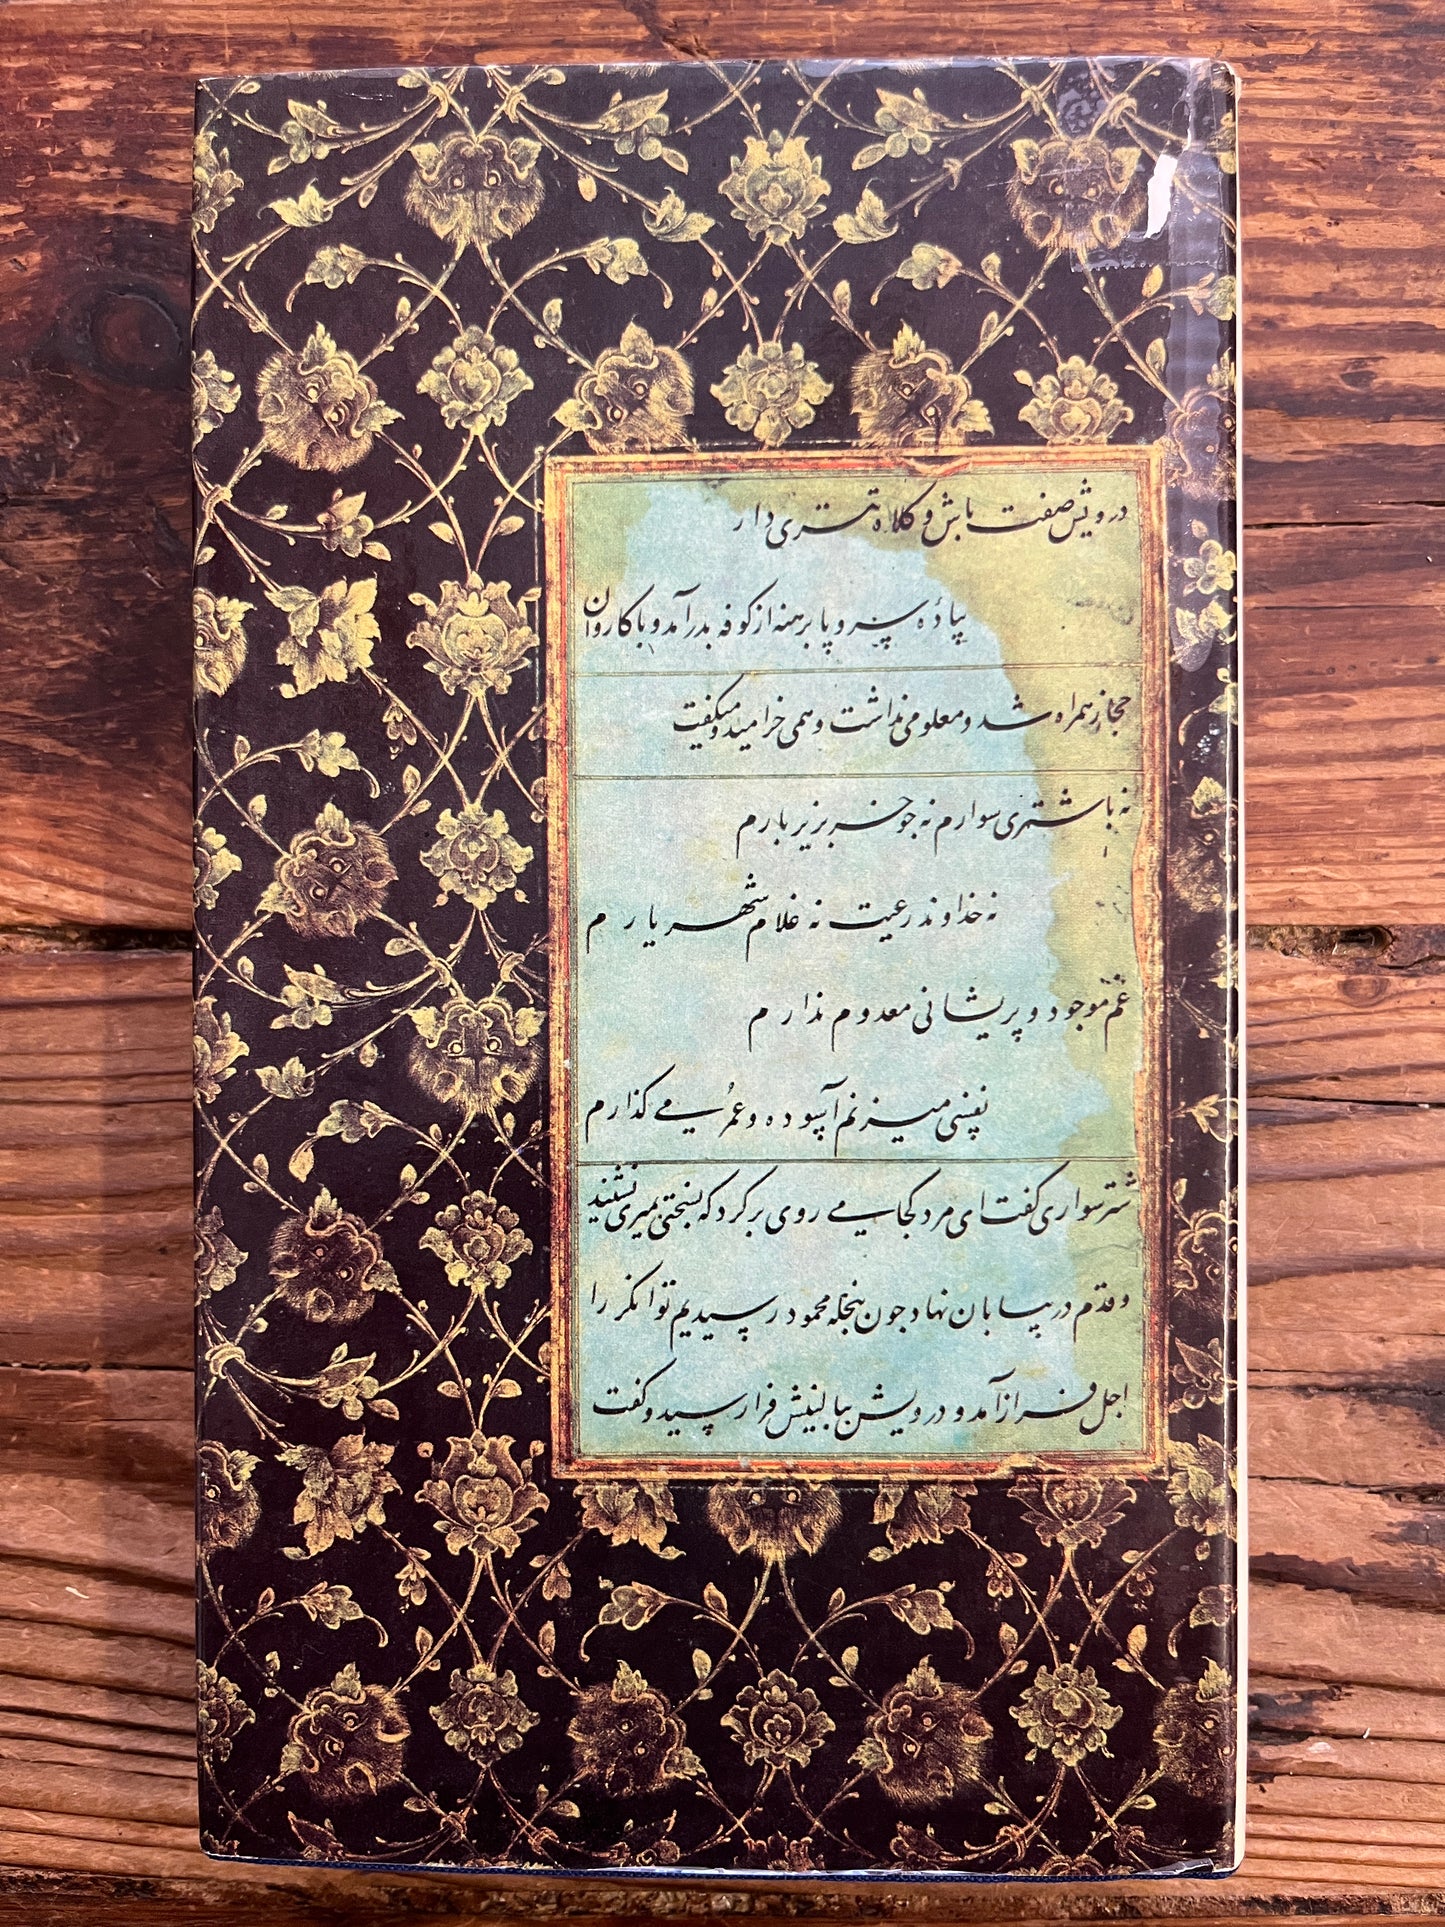 درویش صفت باش و کلاه تتری دار
پیاده سر و پا برهنه از کوفه بدر آمد و با کاروان
حجاز همراه شد و معلومی نداشت و همی خرامید و میگفت
نه باشتری سوارم نه چو خر بزیر بارم
نه خداوند رعیت نه غلام شهریارم
غم موجود و پریشانی معدوم ندارم
نفسی میزنم آسوده و عمری می گذارم
شتر سواری گفت ای مرد کجا می روی برگرد که بسختی بمیری نشنید
و قدم در بیابان نهاد چون بنخله محمود رسیدیم توانکر را
اجل فراز آمد و درویش ببالینش فرا رسید و گفت